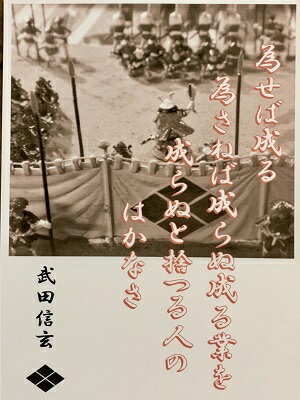 為せば成る
為さねば成らぬ成る業を
成らぬと捨つる人の
はかなさ
武田信玄